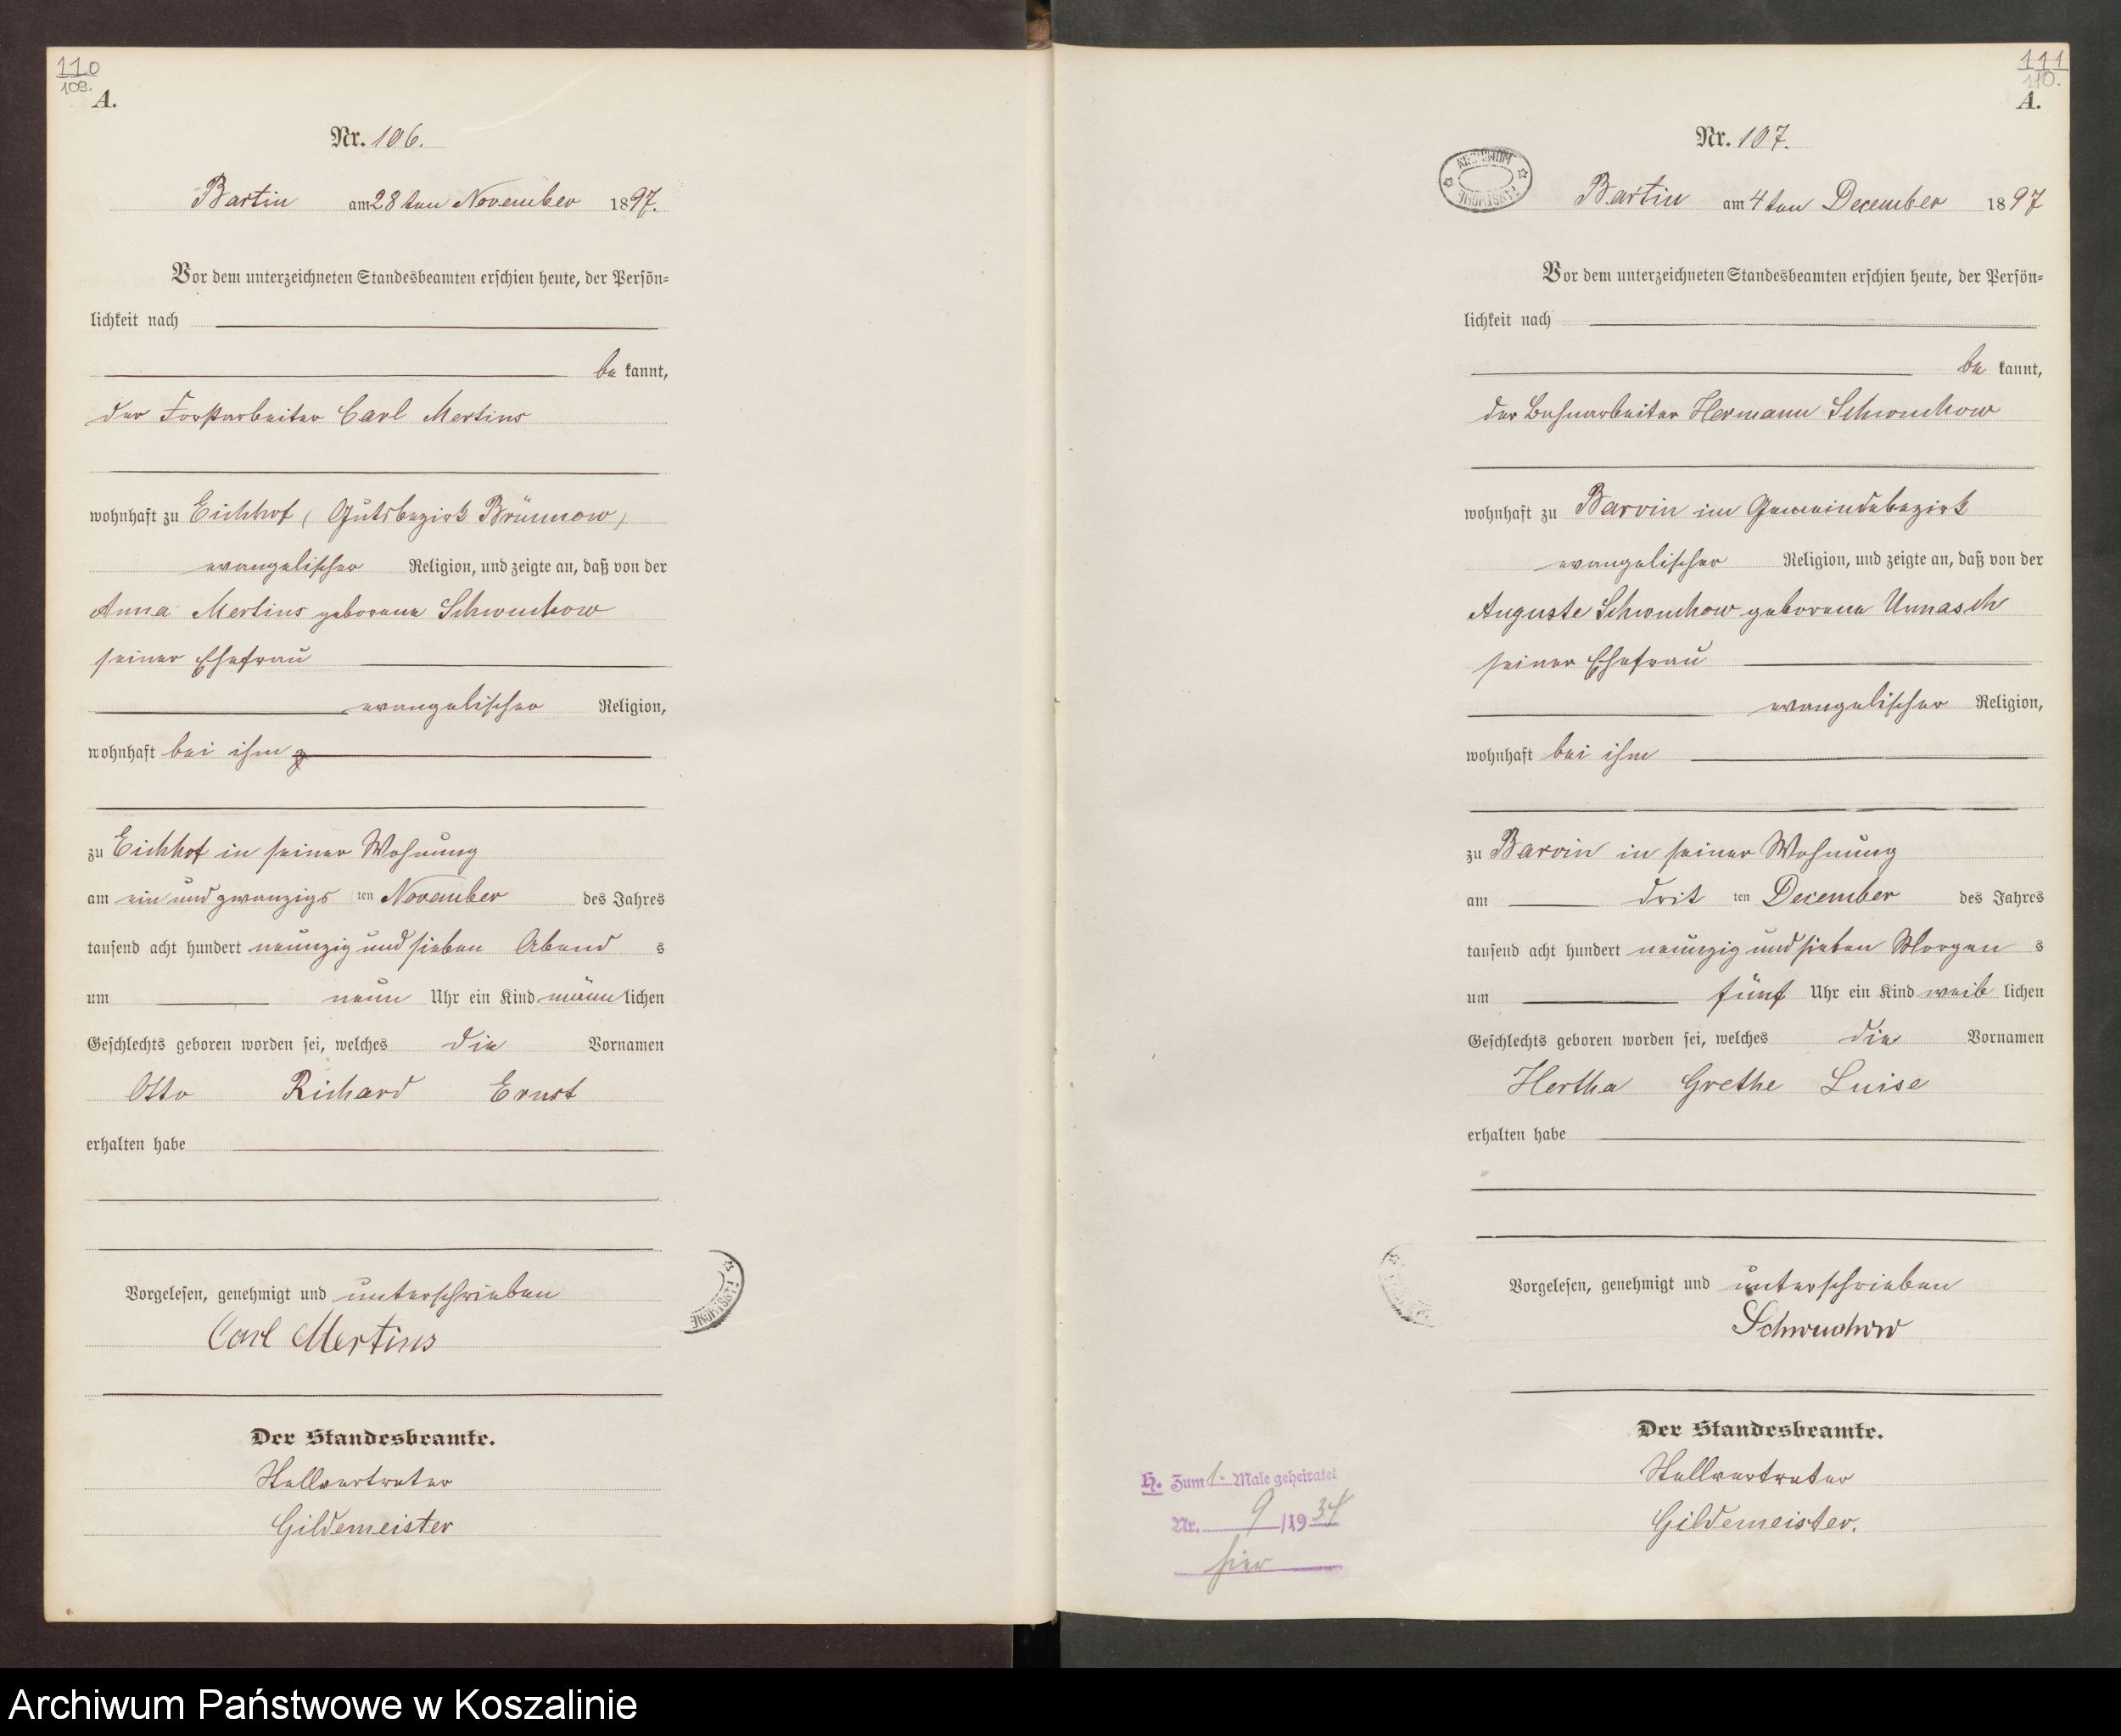 110
109.
A.
Nr. 106.
Bartin am 28ten November 1897.
Vor dem unterzeichneten Standesbeamten erschien heute, der Persön=
lichkeit nach
be kannt,
der Forstarbeiter Carl Mertins
wohnhaft zu Eichhof (Gutsbezirk Brünnow)
evangelischer Religion, und zeigte an, daß von der
Anna Mertins geborene Schwuchow
seiner Ehefrau
evangelischer Religion,
wohnhaft bei ihm
zu Eichhof in seiner Wohnung
am ein und zwanzigs ten November des Jahres
tausend acht hundert neunzig und sieben Abend s
um neun Uhr ein Kind männ lichen
Geschlechts geboren worden sei, welches die Vornamen
Otto Richard Ernst
erhalten habe
Vorgelesen, genehmigt und unterschrieben
Carl Mertins
Der Standesbeamte.
Stellvertreter
Gildemeister
111
110.
A.
Nr. 107.
ARCHIWUM PAŃSTWOWE
Bartin am 4ten December 1897
Vor dem unterzeichneten Standesbeamten erschien heute, der Persön=
lichkeit nach
be kannt,
der Bahnarbeiter Hermann Schwuchow
wohnhaft zu Barvin im Gemeindebezirk
evangelischer Religion, und zeigte an, daß von der
Auguste Schwuchow geborene Unnasch
seiner Ehefrau
evangelischer Religion,
wohnhaft bei ihm
zu Barvin in seiner Wohnung
am drit ten December des Jahres
tausend acht hundert neunzig und sieben Morgen s
um fünf Uhr ein Kind weib lichen
Geschlechts geboren worden sei, welches die Vornamen
Hertha Grethe Luise
erhalten habe
Vorgelesen, genehmigt und unterschrieben
Schwuchow
Der Standesbeamte.
Stellvertreter
Gildemeister.
H. Zum 1. Male geheiratet
Nr. 9 /19 34
hier
Archiwum Państwowe w Koszalinie